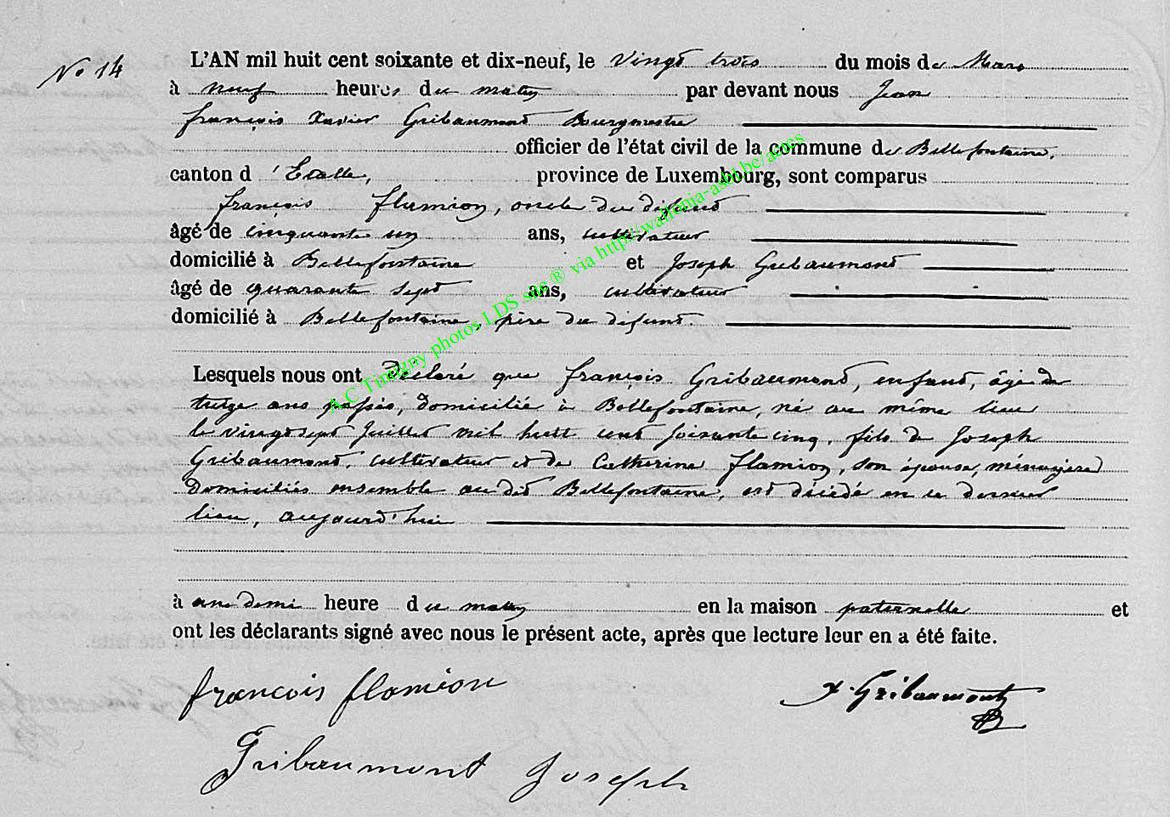 No 14
L'AN mil huit cent soixante et dix-neuf, le vingt trois du mois de Mars
à neuf heures du matin par devant nous Jean
françois Xavier Gribaumont Bourgmestre
officier de l'état civil de la commune de Bellefontaine,
canton d'Etalle, province de Luxembourg, sont comparus
françois flamion, oncle du défunt
âgé de cinquante un ans, cultivateur
domicilié à Bellefontaine et Joseph Gribaumont
âgé de quarante sept ans, cultivateur
domicilié à Bellefontaine, père du défunt.
Lesquels nous ont Déclaré que françois Gribaumont, enfant, âgé de
treize ans passés, domicilié à Bellefontaine, né au même lieu
le vingt sept Juillet mil huit cent soixante cinq, fils de Joseph
Gribaumont, cultivateur et de Catherine flamion, son épouse, ménagère
domiciliés ensemble au dit Bellefontaine, est décédé en ce dernier
lieu, aujourd'hui
à une demi heure du matin en la maison paternelle et
ont les déclarants signé avec nous le présent acte, après que lecture leur en a été faite.
francois flamion
X. Gribaumont
Gribaumont Joseph
photos LDS ® via